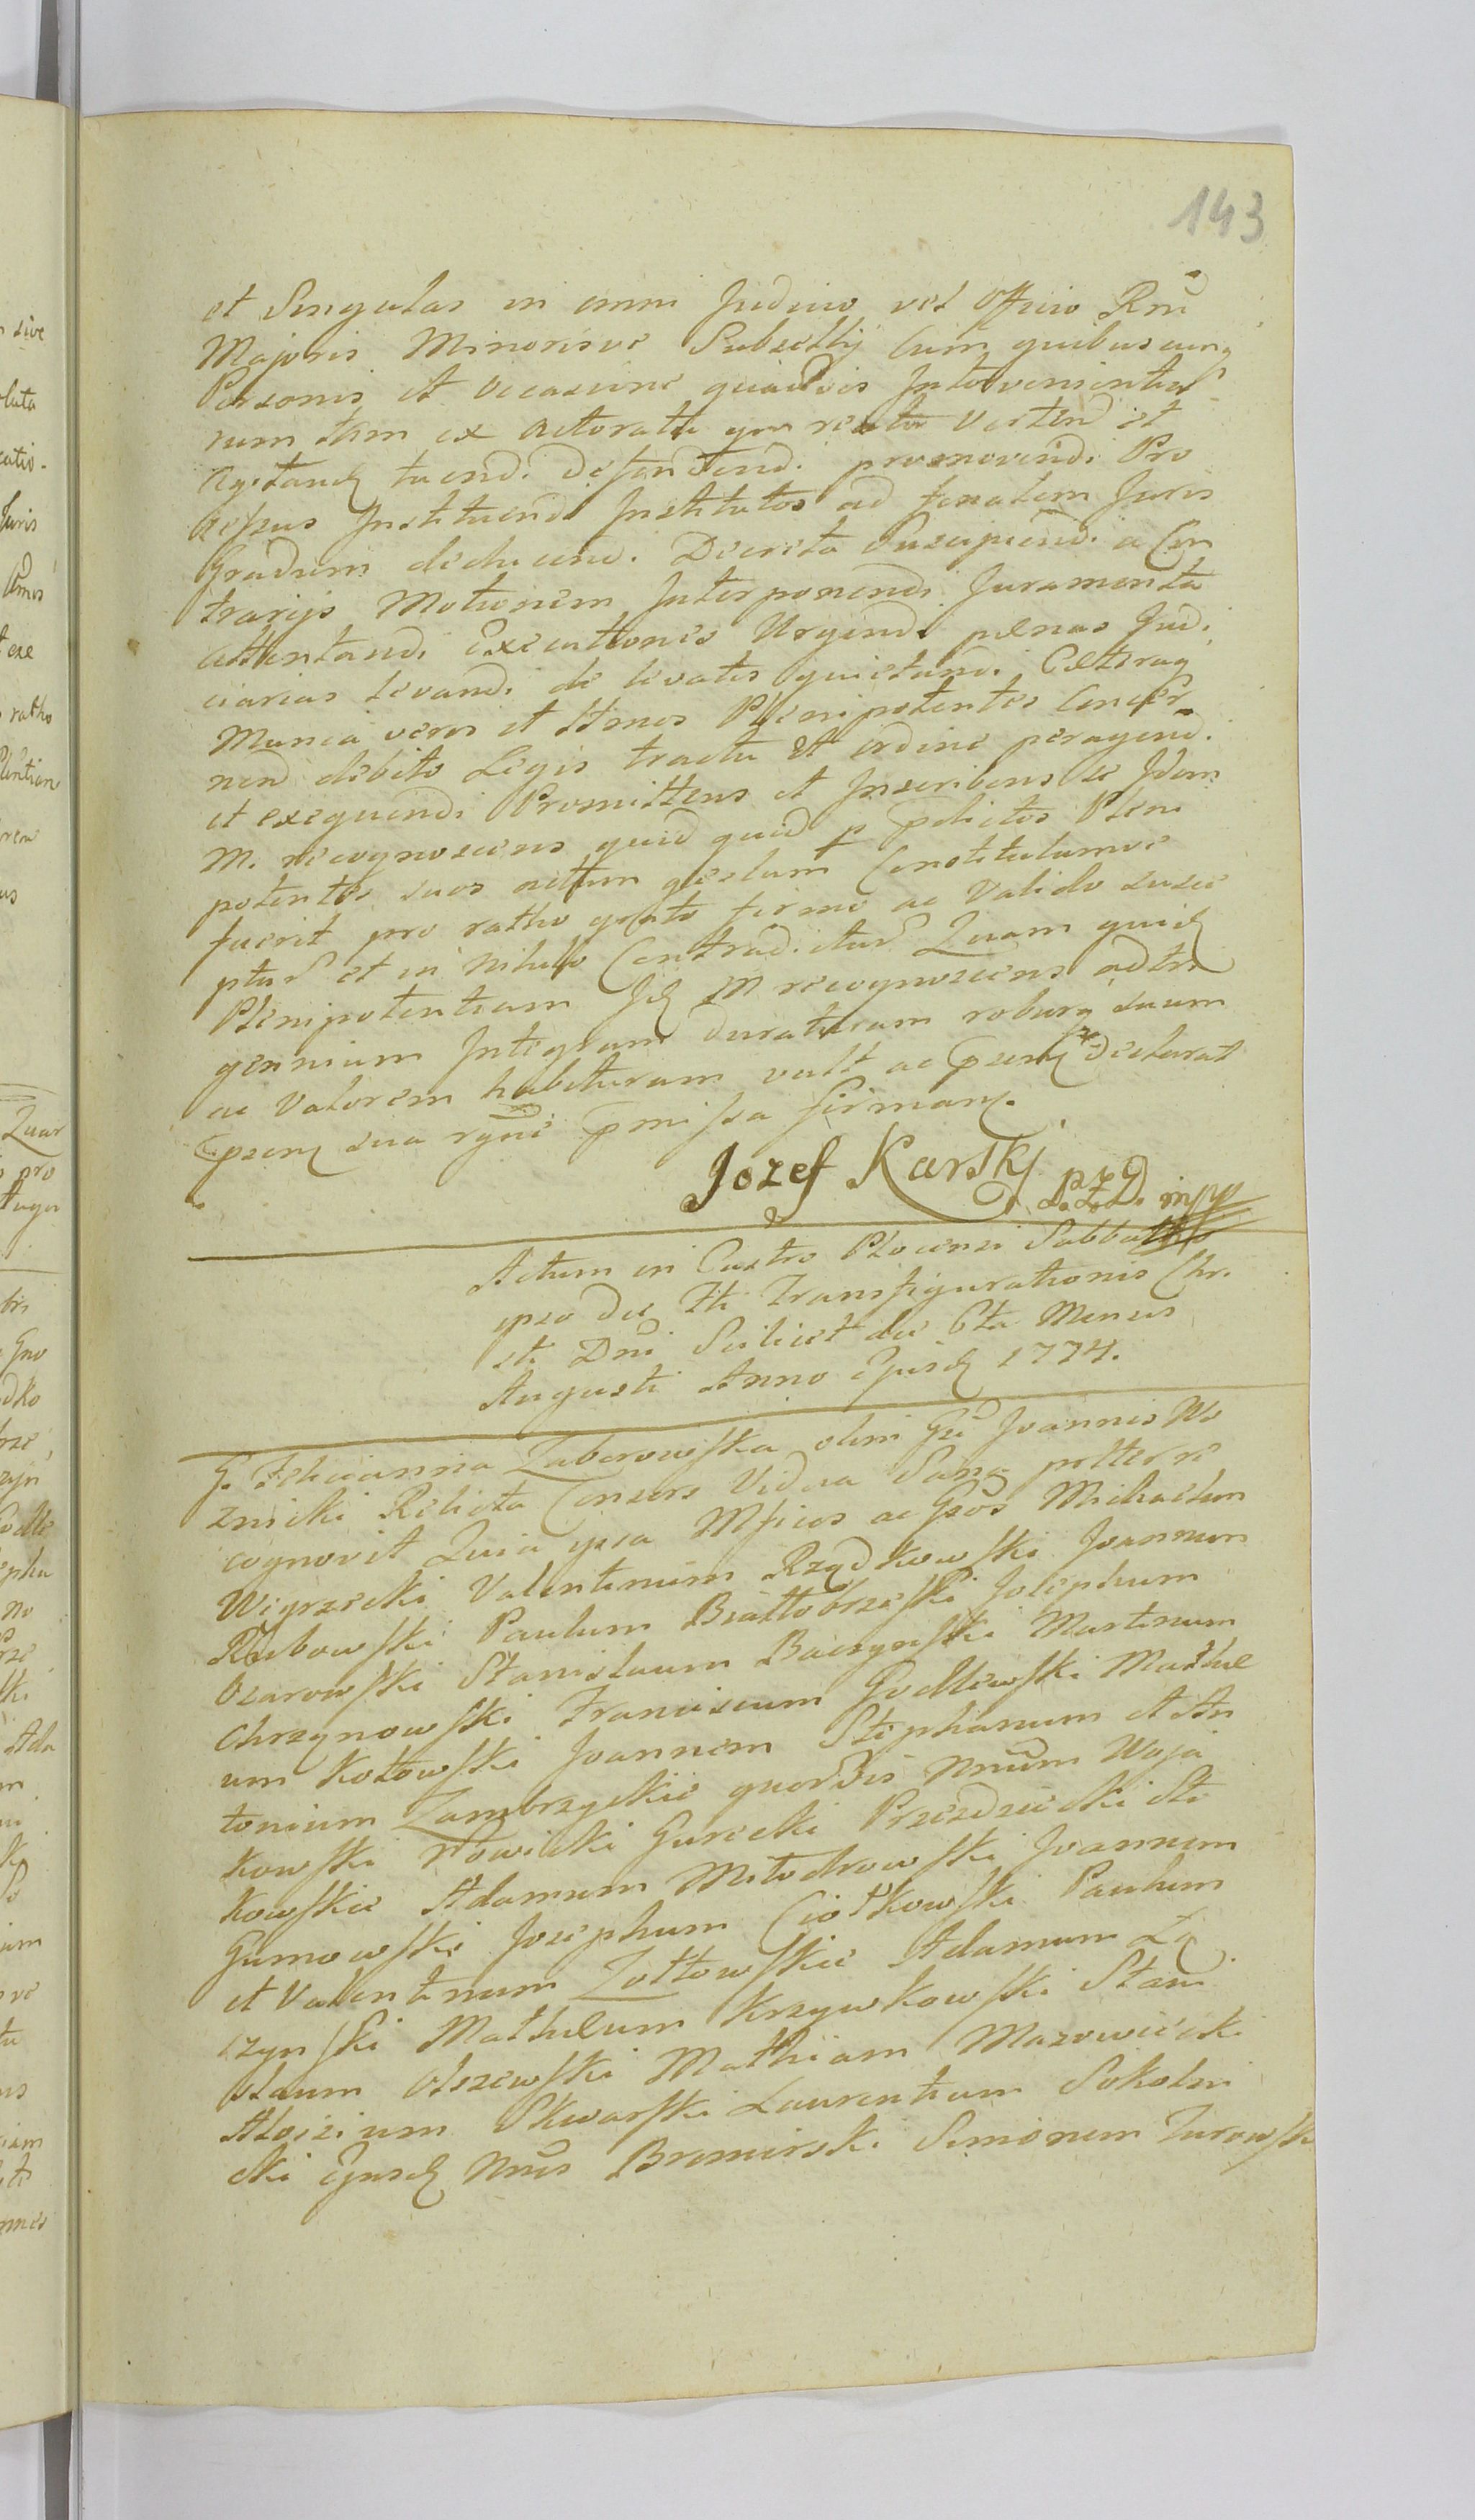 143
et Singulas in omni Judicio vel Officio Rni
Majoris Minorisve Subsellij Cum quibuscunq
Personis et occasione quadvis Intervenientiu
rum tam ex Actoratu qm reatu vertend et
Agitand tuendi defendendi promovendi Pro
cessus Instituendi Institutos ad finalem Juris
Gradum deducend. Decreta Suscipiendi a Con
trarijs Motionem Interponendi Juramenta
Attentandi Executiones Urgendi pænas Judi
ciarias levandi de levatis quietandi Cæteraq
Munia veros et ltimos Plenipotentes Concer
nen debito Legis tractu et ordine peragend.
et exequendi Promittens et Inscribens se Idem
M. recognoscens quid quid p pdictos Pleni
potentes suos actum gestum Constitutumve
fuerit pro ratho grato firmo ac valido susce
ptur et in nihilo Contradictur Quam quid
Plenipotentiam Id M recognoscens ad tri
gennium Integram duraturam roburq suum
ac valorem habituram vult ac psentz declarat
psenz sua rgne pmissa firmanz.
Jozef Karskj P.Z.D. mpp
Actum in Castro Plocensi Sabbatho
ipso die fti Transfigurationis Chri
sti Dni Scilicet die 6ta Mensis
Augusti Anno Ejusd 1774.
G. Felicianna Zaborowska olim Gsi Joannis Wo
znicki Relicta Consors Vidua Sana ptterre
cognovit Quia ipsa Mficos ac Gsos Michaelem
Węgrzecki Valentinum Rządkowski Joannem
Rębowski Paulum Białłobrzeski Josephum
Ozarowski Stanislaum Baczynski Martinum
Chrzqnowski Franciscum Godlewski Mathe
um Kotowski Joannem Stephanum et An
tonium Zambrzyckie quorvis Nnum Woja
kowski Nowicki Gurecki Przezdziecki Sti
kowskie Adamum Młodkowski Joannem
Gumowski Josephum Ciołkowski Paulum
et Valentinum Zołtowskie Adamum Łą
czynski Matheum Krzywkowski Stani
slaum Olszewski Mathiam Mazowiecki
Aloisium Skwarski Laurentium Sokolni
cki Ejusd Nnis Bromirski Simonem Turowski